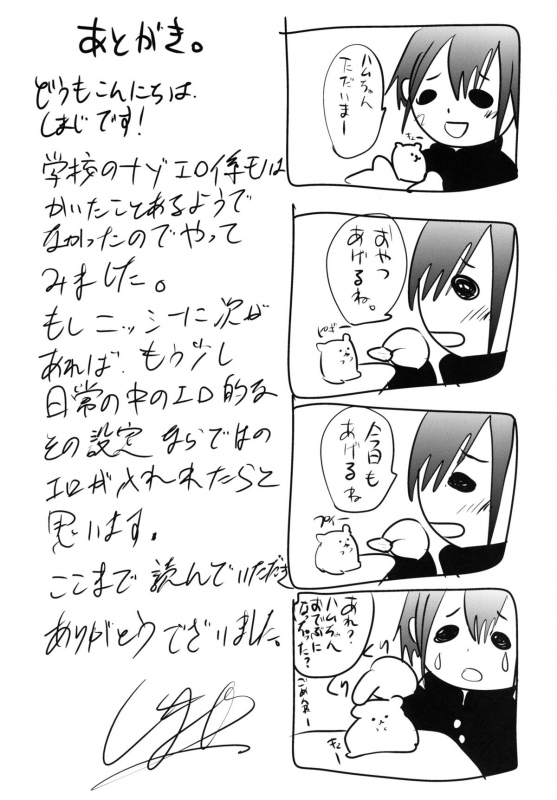 あとがき。
どうもこんにちは、
しまじです!
学校のナゾエロ係もは
かいたことあるようで
なかったのでやって
みました。
もしニッシーに次が
あれば、もう少し
日常の中のエロ的な
その設定ならではの
エロが入れれたらと
思います。
ここまで読んでいただき
ありがとうございました。
ハムちゃん
ただいまー
キュー
おやつ
あげるね。
今日も
あげるね
プイー
あれ?
ハムちゃん
おでぶに
なっちった?
ごめんねー
キュー